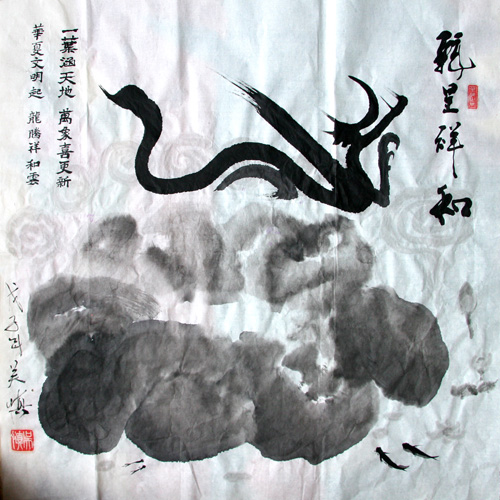 龍呈祥和
一葉涵天地 萬象喜更新
華夏文明起 龍騰祥和雲
戊子年